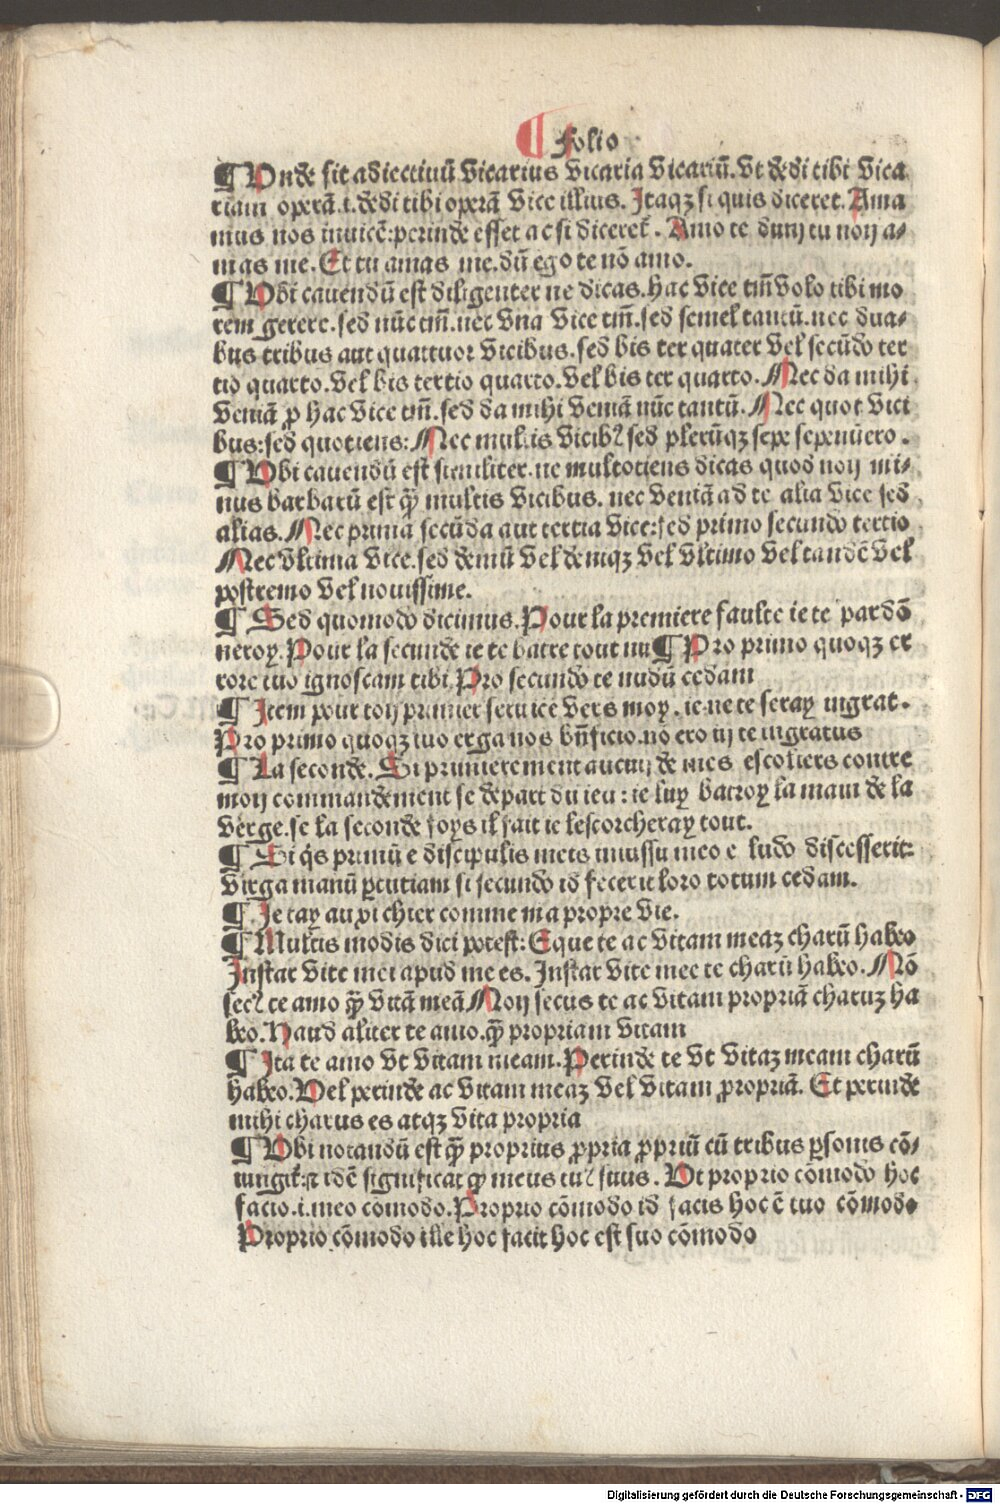 ¶ Folio
¶ Unde fit adiectiuū vicarius vicaria vicariū. Ut dedi tibi vica
riam operā.i.dedi tibi operā vice illius. Itaqꝫ si quis diceret. Ama
mus nos inuicē: perinde esset ac si diceret᷑. Amo te dum tu non a-
mas me. Et tu amas me. dū ego te nō amo.
¶ Ubi cauendū est diligenter ne dicas. hac vice tm̄ volo tibi mo
rem gerere. sed nūc tm̄. nec vna vice tm̄. sed semel tantū. nec dua-
bus tribus aut quattuor vicibus. sed bis ter quater vel secūdo ter
tio quarto. vel bis tertio quarto. vel bis ter quarto. Nec da mihi
veniā ꝓ hac vice tm̄. sed da mihi veniā nūc tantū. Nec quot vici
bus: sed quotiens: Nec multis vicibꝰ sed plerūqꝫ sepe sepenūero.
¶ Ubi cauendū est similiter. ne multotiens dicas quod non mi-
nus barbarū est qꝫ̄ multis vicibus. nec veniā ad te alia vice sed
alias. Nec prima secūda aut tertia vice: sed primo secundo tertio
Nec vltima vice. sed demū vel deniqꝫ vel vltimo vel tandē vel
postremo vel nouissime.
¶ Sed quomodo dicimus. Pour la premiere faulte ie te pardō
neroy. Pour la secunde ie te batre tout nu ¶ Pro primo quoqꝫ er
rore tuo ignoscam tibi. Pro secundo te nudū cedam
¶ Item pour ton premier seruice vers moy. ie ne te seray ingrat.
Pro primo quoqꝫ tuo erga nos bn̄ficio. nō ero in te ingratus
¶ La seconde. Si primierement aucun de mes escoliers contre
mon commandement se depart du ieu: ie luy batroy la main de la
verge. se la seconde foys il fait ie lescorcheray tout.
¶ Si q̇s primū e discipulis meis iniussu meo e ludo discesserit:
virga manū ꝑcutiam si secundo id fecerit loro totum cedam.
¶ Je tay auxi chier comme ma propre vie.
¶ Multis modis dici potest: Eque te ac vitam meaꝫ charū habeo
Instar vite mei apud me es. Instar vite mee te charū habeo. Nō
secꝰ te amo qꝫ̄ vitā meā Non secus te ac vitam propriā charuꝫ ha
beo. Haud aliter te amo. qꝫ̄ propriam vitam
¶ Ita te amo vt vitam meam. Perinde te vt vitaꝫ meam charū
habeo. Vel perinde ac vitam meaꝫ vel vitam ꝓpriā. Et perinde
mihi charus es atqꝫ vita propria
¶ Ubi notandū est qꝫ̄ proprius ꝓpria ꝓpriū cū tribus ꝑsonis cō-
iungit᷑: ⁊ idē significat qꝫ meus tuꝰ suus. Ut proprio cōmodo hoc
facio.i.meo cōmodo. Proprio cōmodo id facis hoc ē tuo cōmodo
Proprio cōmodo ille hoc facit hoc est suo cōmodo
Digitalisierung gefördert durch die Deutsche Forschungsgemeinschaft - DFG